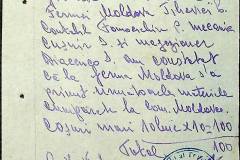 Fermei Moldova
Contabil Tomochkin P. mecanic
Cusnir S. și magazioner
Diacenco S. am constatat
că la ferma Moldova s'a
primit următoarele materiale
cumpărate la com. Moldova
Coșuri mari 10 buc x 10 = 100
Total 100